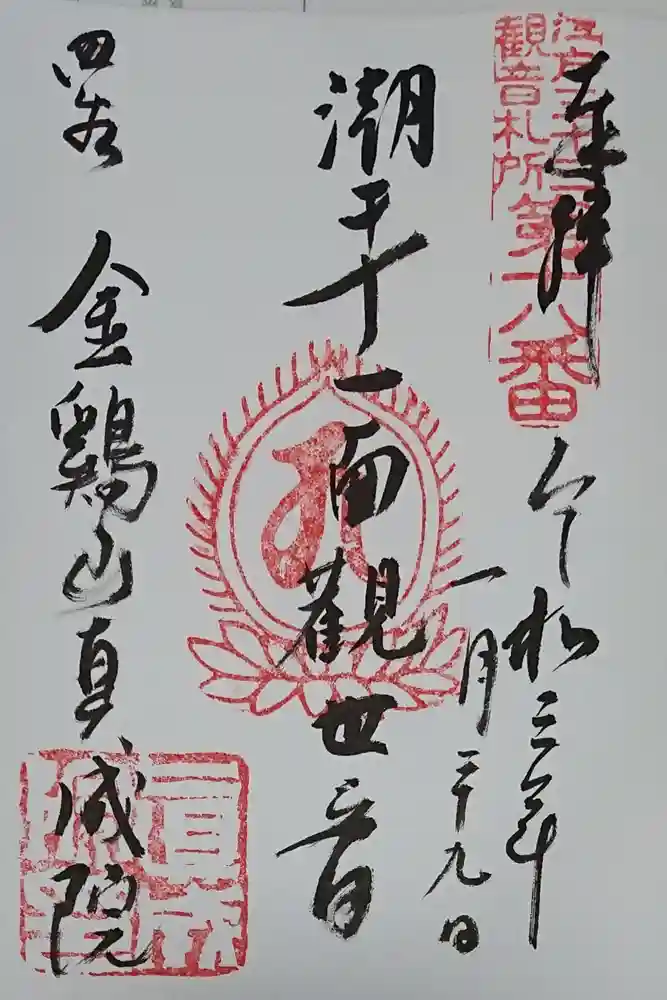 江戸三十三
観音札所
第十八番
奉拝
令和三年
一月二十九日
潮干十一面觀世音
四谷 金鷄山真成院
真成院